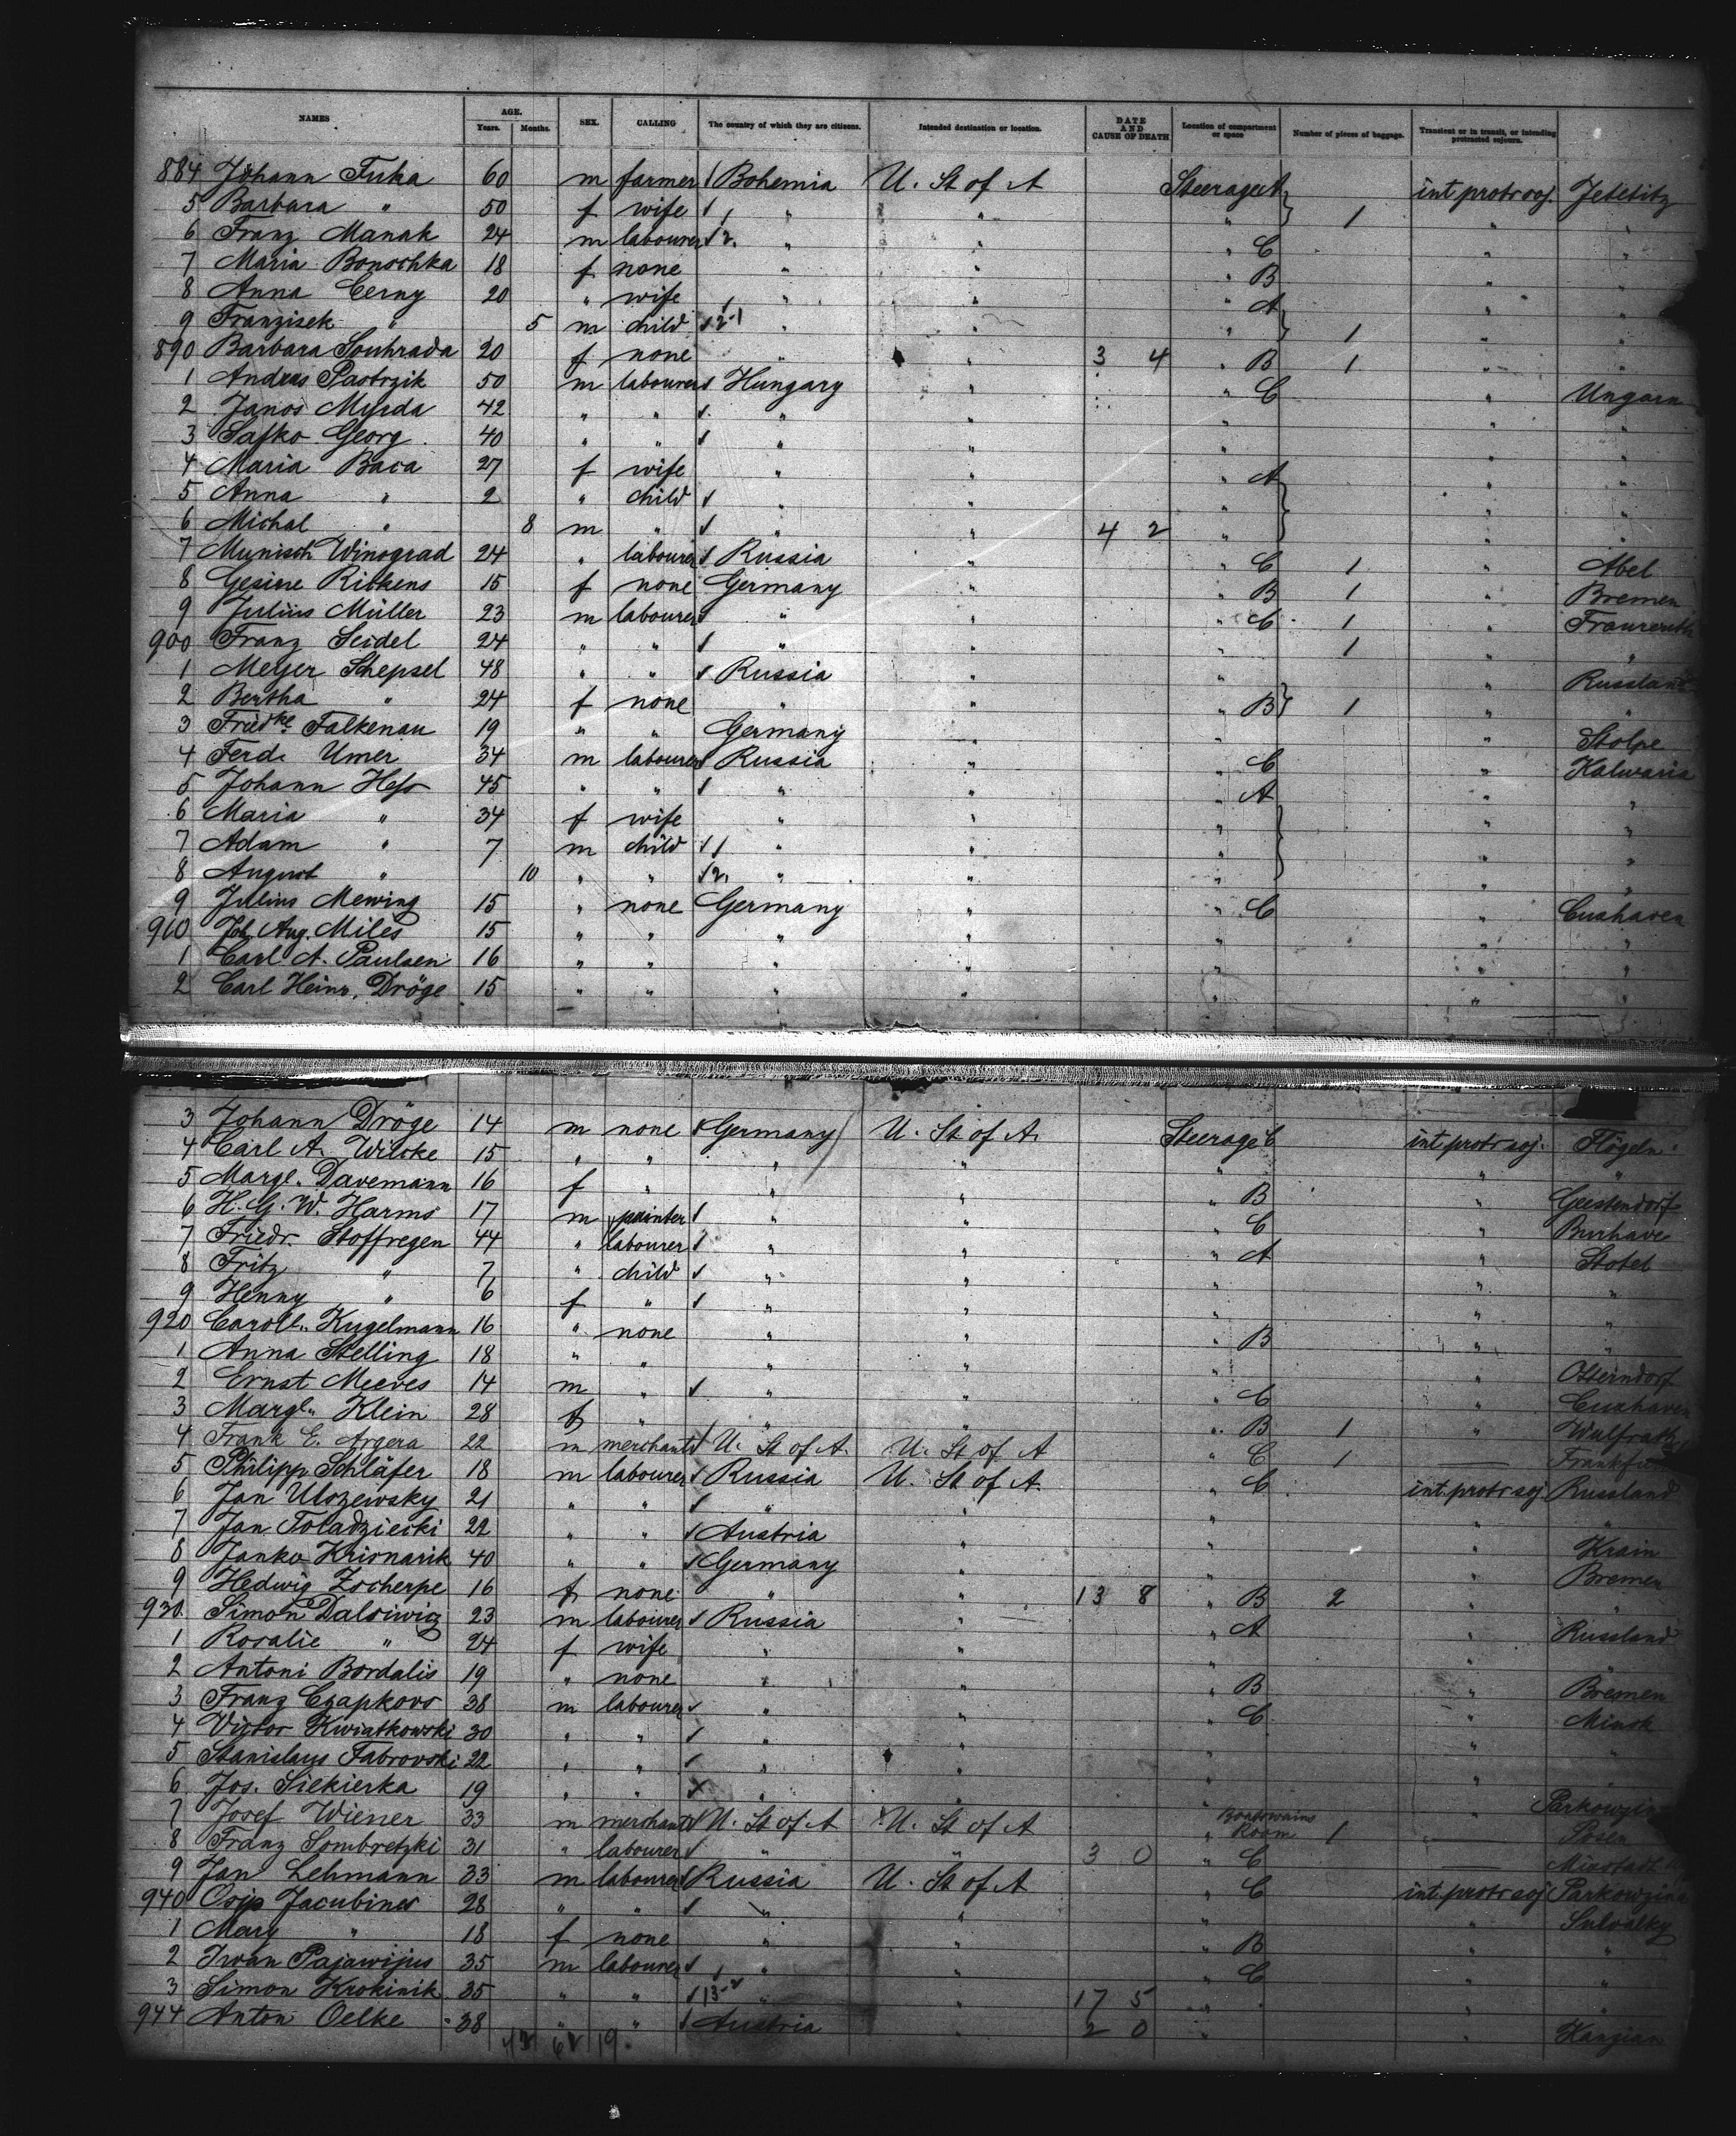 NAMES AGE. Years. Months. SEX. CALLING The country of which they are citizens. Intended destination or location. DATE AND CAUSE OF DEATH Location of compartment or space Number of pieces of baggage. Transient or in transit, or intending protracted sojourn.
884 Johann Fuka 60 m farmer Bohemia U. St of A Steerage A int protr soj.
5 Barbara " 50 f wife " " " 1 " "
6 Franz Manak 24 m labourer " " " C " "
7 Maria Bonoschka 18 f none " " " B " "
8 Anna Cerny 20 " wife " " " A " "
9 Franzisek " 5 m child " " " 1 " "
890 Barbara Souhrada 20 f none " " 3 4 " B 1 " "
1 Andras Pastrzik 50 m labourer Hungary " " C " Ungarn
2 Janos 42 " " " " " " "
3 Safko Georg 40 " " " " " " "
4 Maria Baca 27 f wife " " " A " "
5 Anna " 2 " child " " " " "
6 Michal " 8 m " " " 4 2 " " "
7 Munisch Winograd 24 " labourer Russia " " C 1 " Abel
8 Gesine Rickens 15 f none Germany " " B 1 " Bremen
9 Julius Müller 23 m labourer " " " C 1 "
900 Franz Seidel 24 " " " " " 1 " "
1 Meyer Schepsel 48 " " Russia " " " Russland
2 Bertha " 24 f none " " " B 1 " "
3 Friedke Falkenau 19 " " Germany " " " Stolpe
4 Ferd. Umer 34 m labourer Russia " " C " Kalwaria
5 Johann Hess 45 " " " " " A " "
6 Maria " 34 f wife " " " " "
7 Adam " 7 m child " " " " "
8 August " 10 " " " " " " "
9 Julius Mewing 15 " none Germany " " C " Cuxhaven
910 Joh. Aug. Miles 15 " " " " " " "
1 Carl A. Paulsen 16 " " " " " " "
2 Carl Heinr. Dröge 15 " " " " " " "
3 Johann Dröge 14 m none Germany U. St of A. Steerage C int protr soj. Flögeln
4 Carl A. Wilcke 15 " " " " " " "
5 Margt. Davemann 16 f " " " " B " Geestendorf
6 H. G. W. Harms 17 m painter " " " C " Burhave
7 Friedr. Stoffregen 44 " labourer " " " A " Stotel
8 Fritz " 7 " child " " " " "
9 Henny " 6 f " " " " " "
920 Carol. Kugelmann 16 " none " " " B " "
1 Anna Stelling 18 " " " " " " Otterndorf
2 Ernst Meeves 14 m " " " " C " Cuxhaven
3 Margt. Klein 28 f " " " " B 1 " Wülfrath
4 Frank E. Argera 22 m merchant U. St of A. U. St of A " C 1
5 Philipp Schläfer 18 m labourer Russia U. St of A. " C int. protr soj. Russland
6 Jan Ulozewsky 21 " " " " " " "
7 Jan Toladziecki 22 " " Austria " " " Krain
8 Janko Krisnarik 40 " " Germany " " " Bremen
9 Hedwig Zscherpe 16 f none " " 13 8 " B 2 " "
930 Simon Dalsiwicz 23 m labourer Russia " " A " Russland
1 Rosalie " 24 f wife " " " " "
2 Antoni Bordalis 19 " none " " " B " Bremen
3 Franz Czapkovs 38 m labourer " " " C " Minsk
4 Victor Kwiatkowski 30 " " " " " " "
5 Stanislaus Fabrovski 22 " " " " " " "
6 Jos. Siekierka 19 " " " " " "
7 Josef Wiener 33 m merchant U. St of A U. St of A " Boatswains Room 1 Posen
8 Franz Sombretzki 31 " labourer " " 3 0 " C
9 Jan Lehmann 33 m labourer Russia U. St of A " C int. protr soj.
940 Osip Jacubines 28 " " " " " "
1 Mary " 18 f none " " " B " "
2 Iwan Pajawijus 35 m labourer " " " C " "
3 Simon Krokinik 35 " " 13 " " 17 5 " " "
944 Anton Oelke 38 " " Austria " 2 0 " " Kanzian
19.